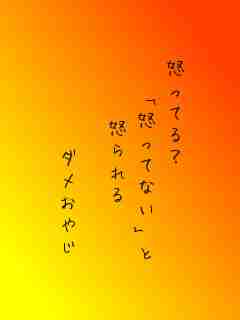 怒ってる?
「怒ってない」と
怒られる
ダメおやじ